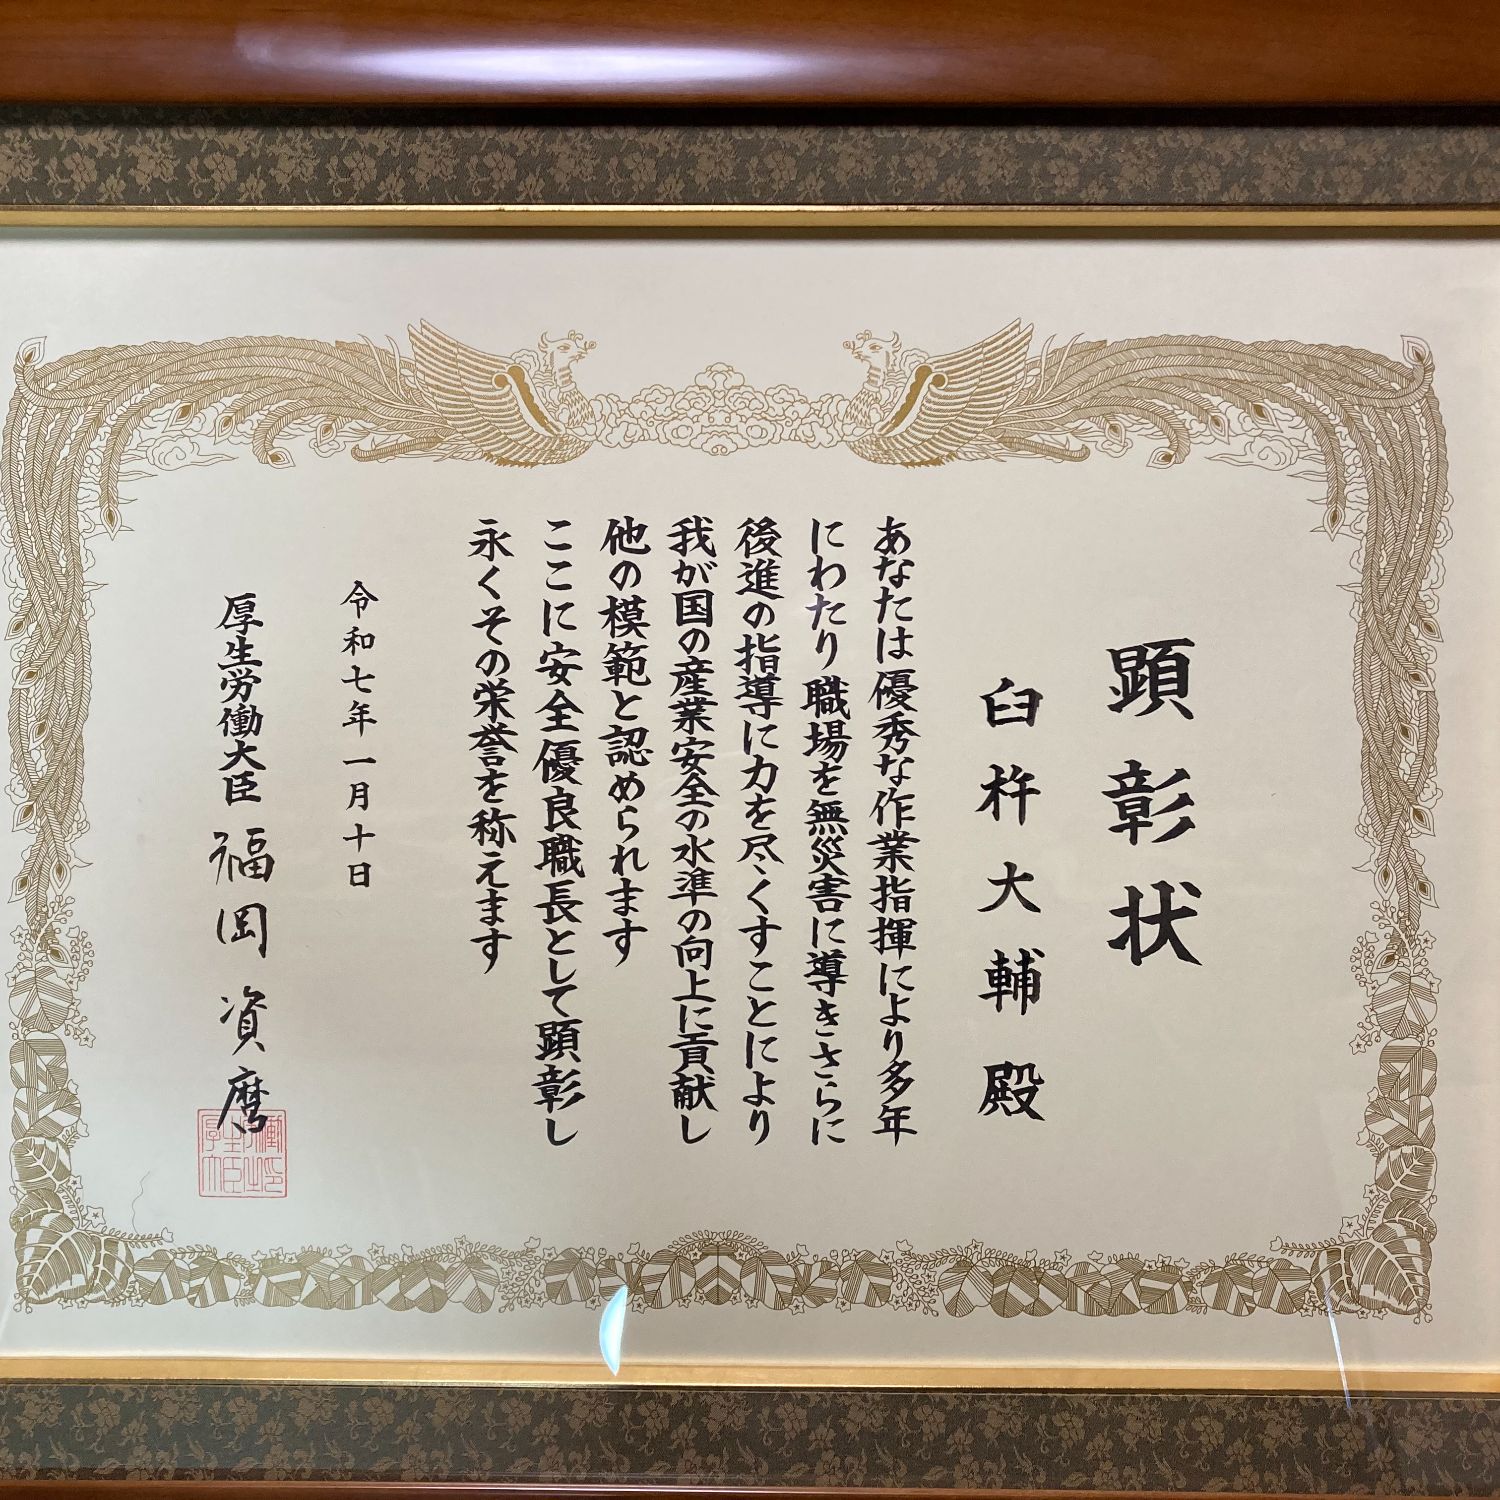 顕彰状
臼杵大輔殿
あなたは優秀な作業指揮により多年
にわたり職場を無災害に導きさらに
後進の指導に力を尽くすことにより
我が国の産業安全の水準の向上に貢献し
他の模範と認められます
ここに安全優良職長として顕彰し
永くその栄誉を称えます
令和七年一月十日
厚生労働大臣 福岡資麿